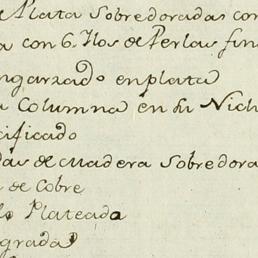 de Plata Sobredoradas con
a con 6. Ilos de Perlas fin
ngarzado en plata
a Columna en su Nich
cificado
das de madera sobredora
de Cobre
lo Plateada
grada